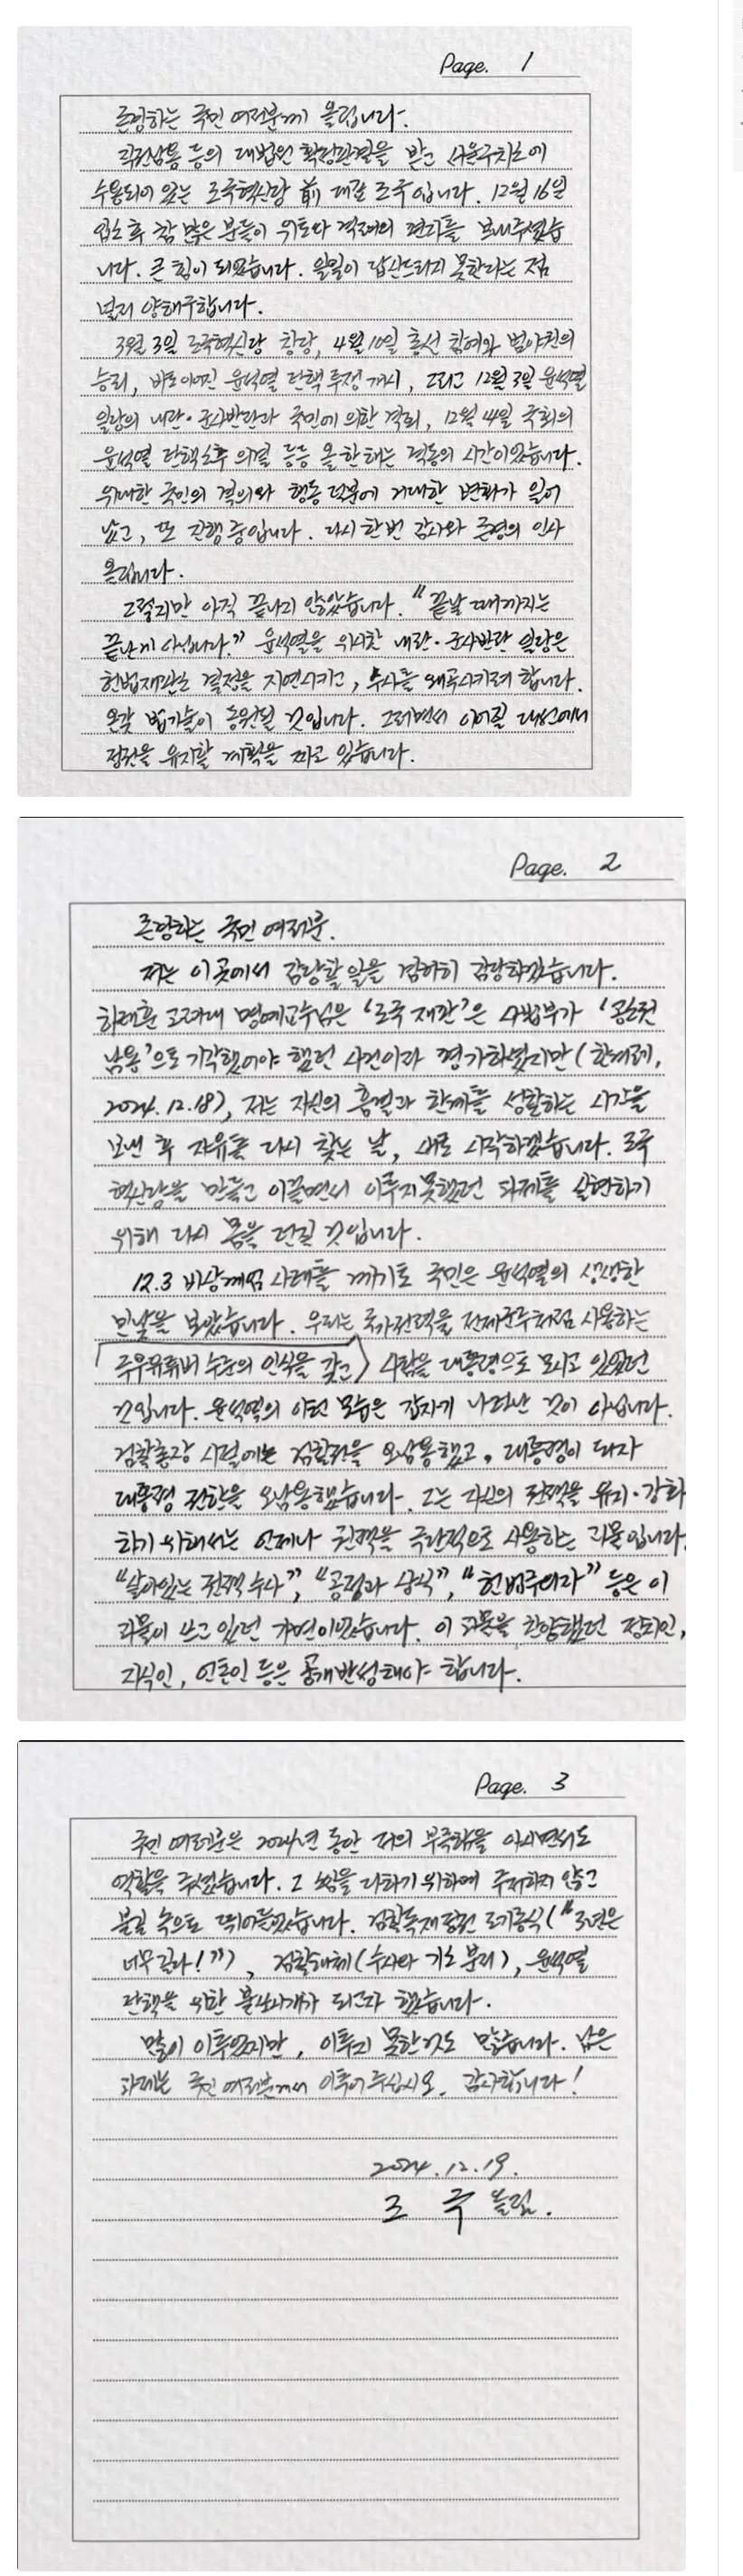 Page. 1
존경하는 국민 여러분께 올립니다.
직권남용 등의 대법원 확정판결을 받고 서울구치소에
수용되어 있는 조국혁신당 前 대표 조국입니다. 12월 16일
입소 후 참 많은 분들이 위로와 격려의 편지를 보내주셨습
니다. 큰 힘이 되었습니다. 일일이 답신드리지 못한다는 점
널리 양해구합니다.
3월 3일 조국혁신당 창당, 4월 10일 총선 참여와 범야권의
승리, 바로 이어진 윤석열 탄핵 투쟁 개시, 그리고 12월 3일 윤석열
일당의 내란·군사반란과 국민에 의한 격퇴, 12월 14일 국회의
윤석열 탄핵소추 의결 등등 올 한해는 격동의 시간이었습니다.
위대한 국민의 결의와 행동 덕분에 거대한 변화가 일어
났고, 또 진행 중입니다. 다시 한번 감사와 존경의 인사
올립니다.
그렇지만 아직 끝나지 않았습니다. “끝날 때까지는
끝난게 아닙니다.” 윤석열을 위시한 내란·군사반란 일당은
헌법재판소 결정을 지연시키고, 수사를 왜곡시키려 합니다.
온갖 법기술이 동원될 것입니다. 그러면서 이어질 대선에서
정권을 유지할 계획을 짜고 있습니다.
Page. 2
존경하는 국민 여러분.
저는 이곳에서 감당할 일을 겸허히 감당하겠습니다.
하태훈 고려대 명예교수님은 ‘조국 재판’은 사법부가 ‘공소권
남용’으로 기각했어야 했던 사건이라 평가하셨지만 (한겨레,
2024.12.18), 저는 자신의 흠결과 한계를 성찰하는 시간을
보낸 후 자유를 다시 찾는 날, 새로 시작하겠습니다. 조국
혁신당을 만들고 이끌면서 이루지 못했던 과제를 실현하기
위해 다시 몸을 던질 것입니다.
12.3 비상계엄 사태를 계기로 국민은 윤석열의 생생한
민낯을 보았습니다. 우리는 국가권력을 전제군주처럼 사용하는
극우유튜버 수준의 인식을 갖고 사람을 대통령으로 모시고 있었던
것입니다. 윤석열의 이런 모습은 갑자기 나타난 것이 아닙니다.
검찰총장 시절에는 검찰권을 오남용했고, 대통령이 되자
대통령 권한을 오남용했습니다. 그는 자신의 권력을 유지·강화
하기 위해서는 언제나 권력을 극단적으로 사용하는 괴물입니다.
“살아있는 권력 수사”, “공정과 상식”, “헌법주의자” 등은 이
괴물이 쓰고 있던 가면이었습니다. 이 괴물을 찬양했던 정치인,
지식인, 언론인 등은 공개반성해야 합니다.
Page. 3
국민 여러분은 2024년 동안 저의 부족함을 아시면서도
역할을 주셨습니다. 그 소임을 다하기 위하여 주저하지 않고
불길 속으로 뛰어들었습니다. 검찰독재정권 조기종식 (“3년은
너무 길다!”), 검찰해체 (수사와 기소 분리), 윤석열
탄핵을 위한 불쏘시개가 되고자 했습니다.
많이 이루었지만, 이루지 못한 것도 많습니다. 남은
과제는 국민 여러분께서 이루어 주십시오. 감사합니다!
2024.12.19.
조 국 올림.